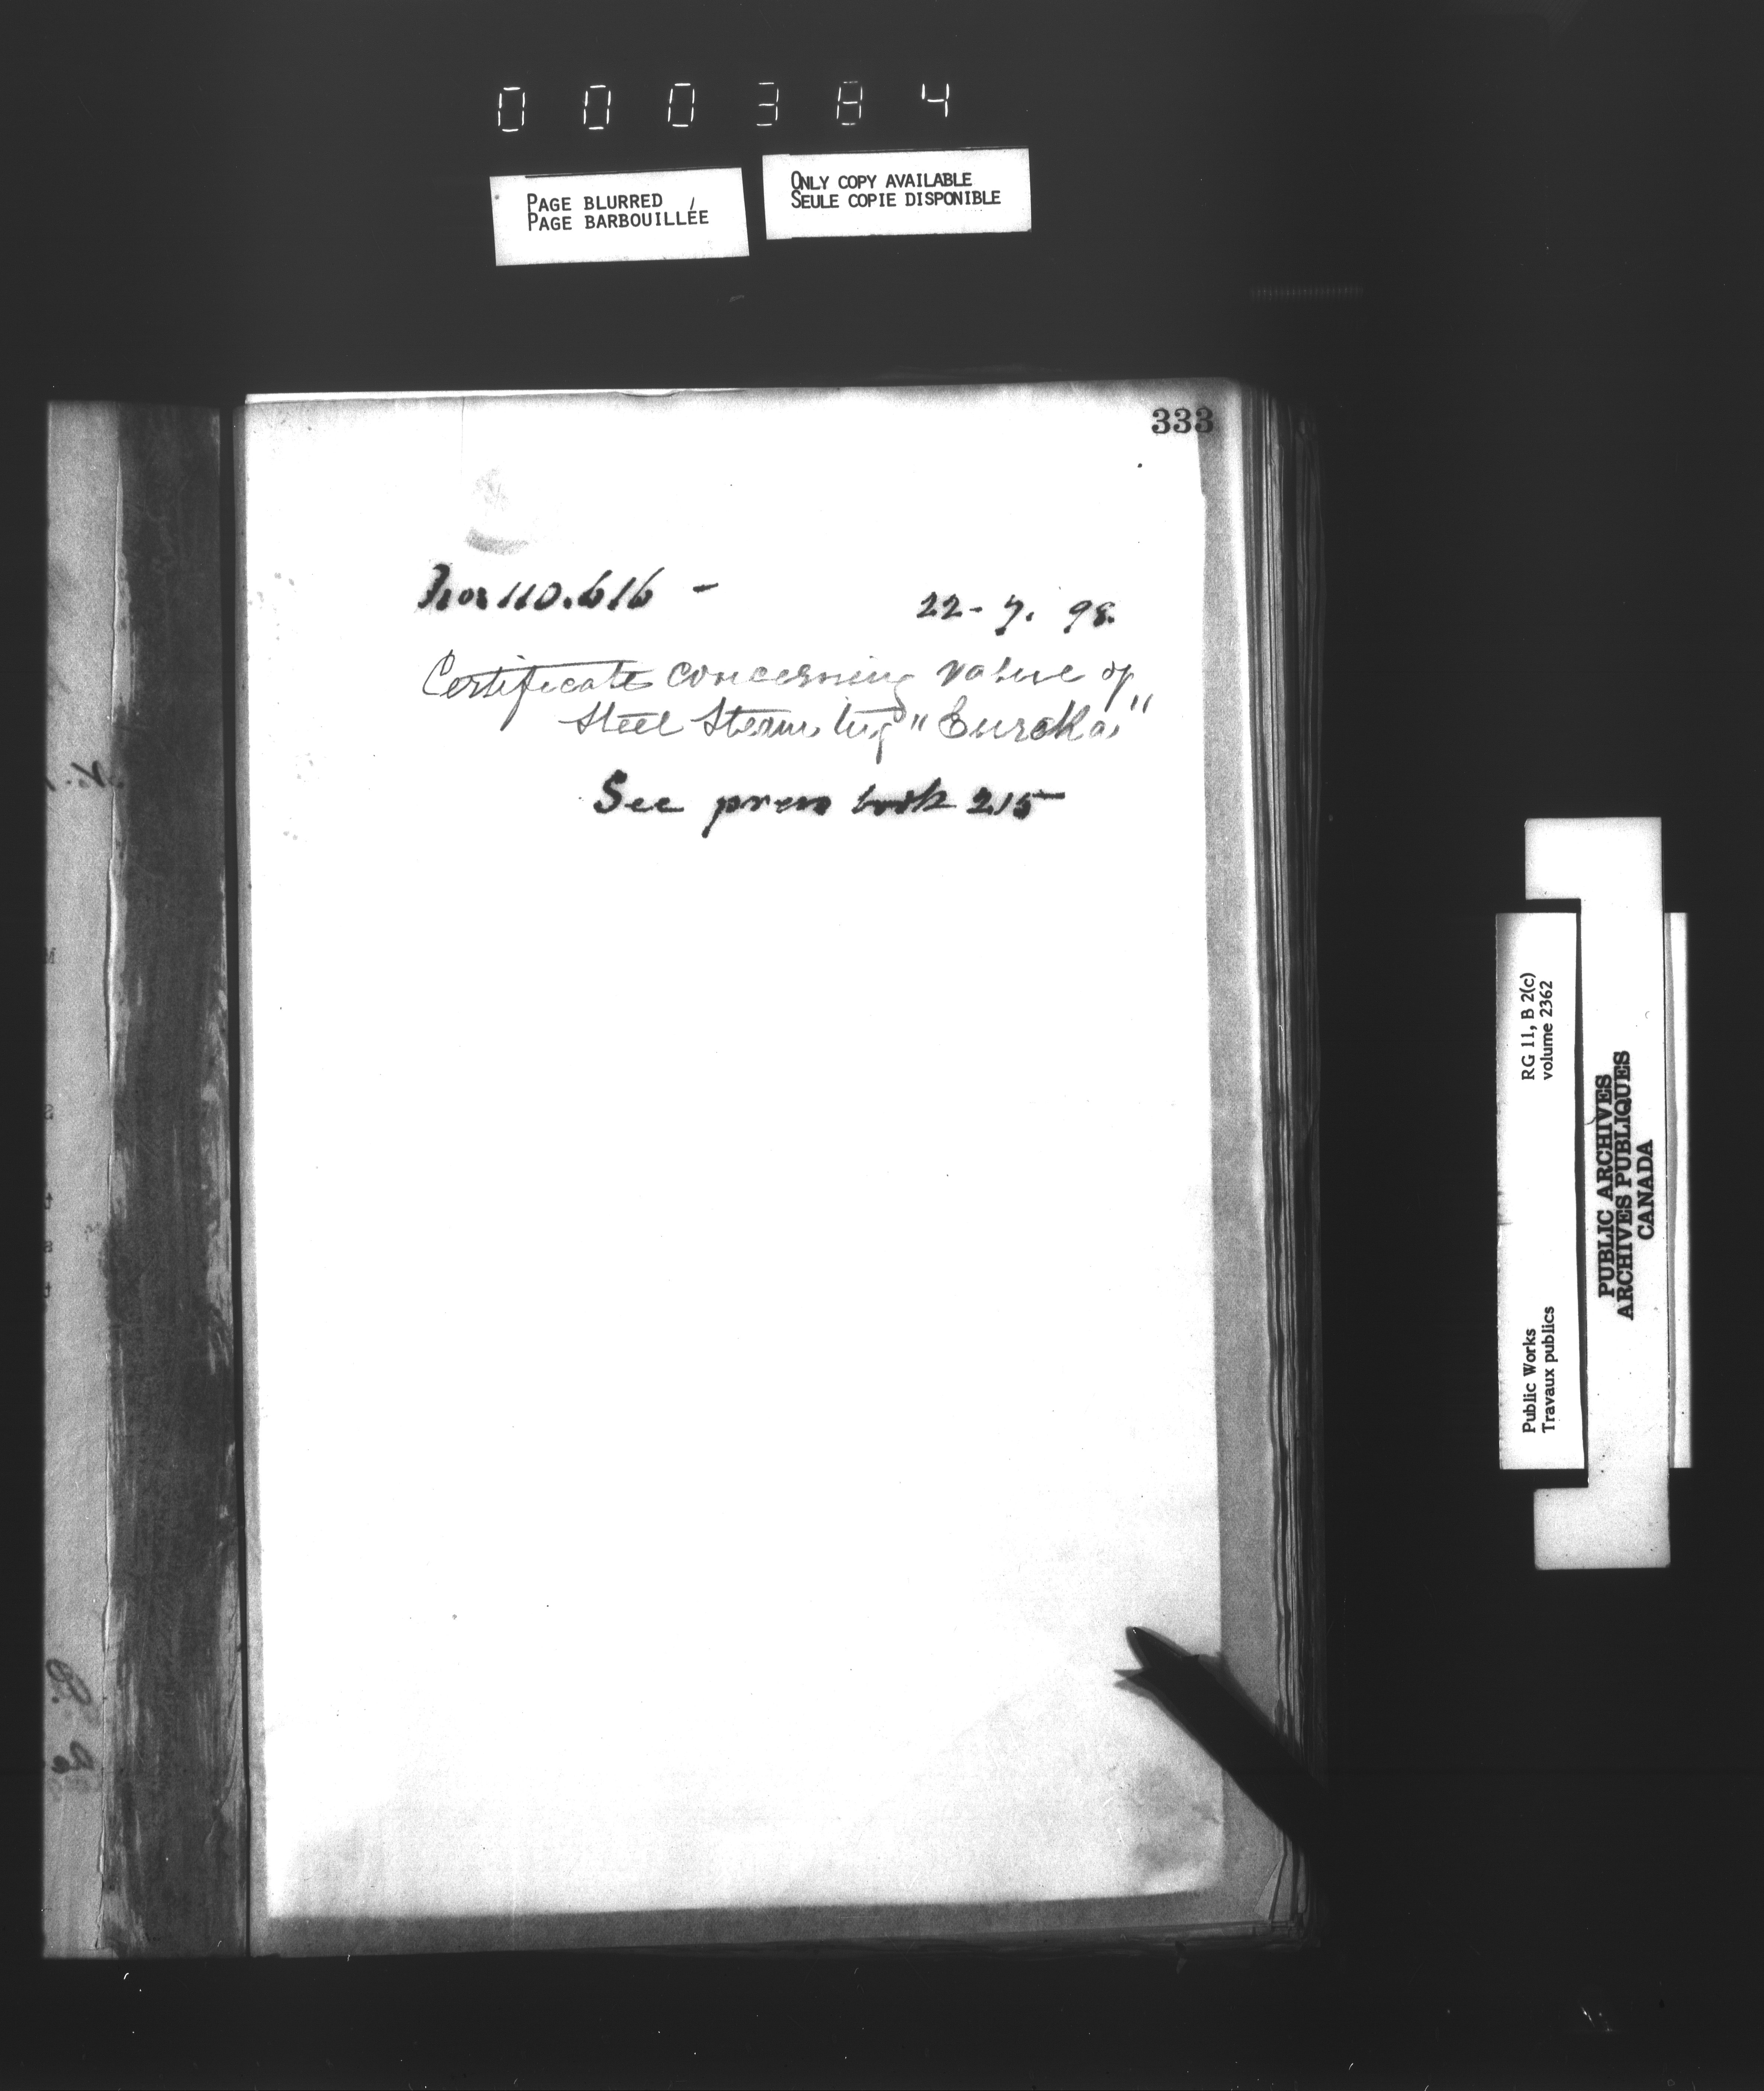 000384
PAGE BLURRED
PAGE BARBOUILLÉE
ONLY COPY AVAILABLE
SEULE COPIE DISPONIBLE
333
110.616 -
22-7. 98.
Certificate concerning value of
Steel Steam tug "Eureka"
See press book 215
RG 11, B 2(c)
volume 2362
Public Works
Travaux publics
PUBLIC ARCHIVES
ARCHIVES PUBLIQUES
CANADA